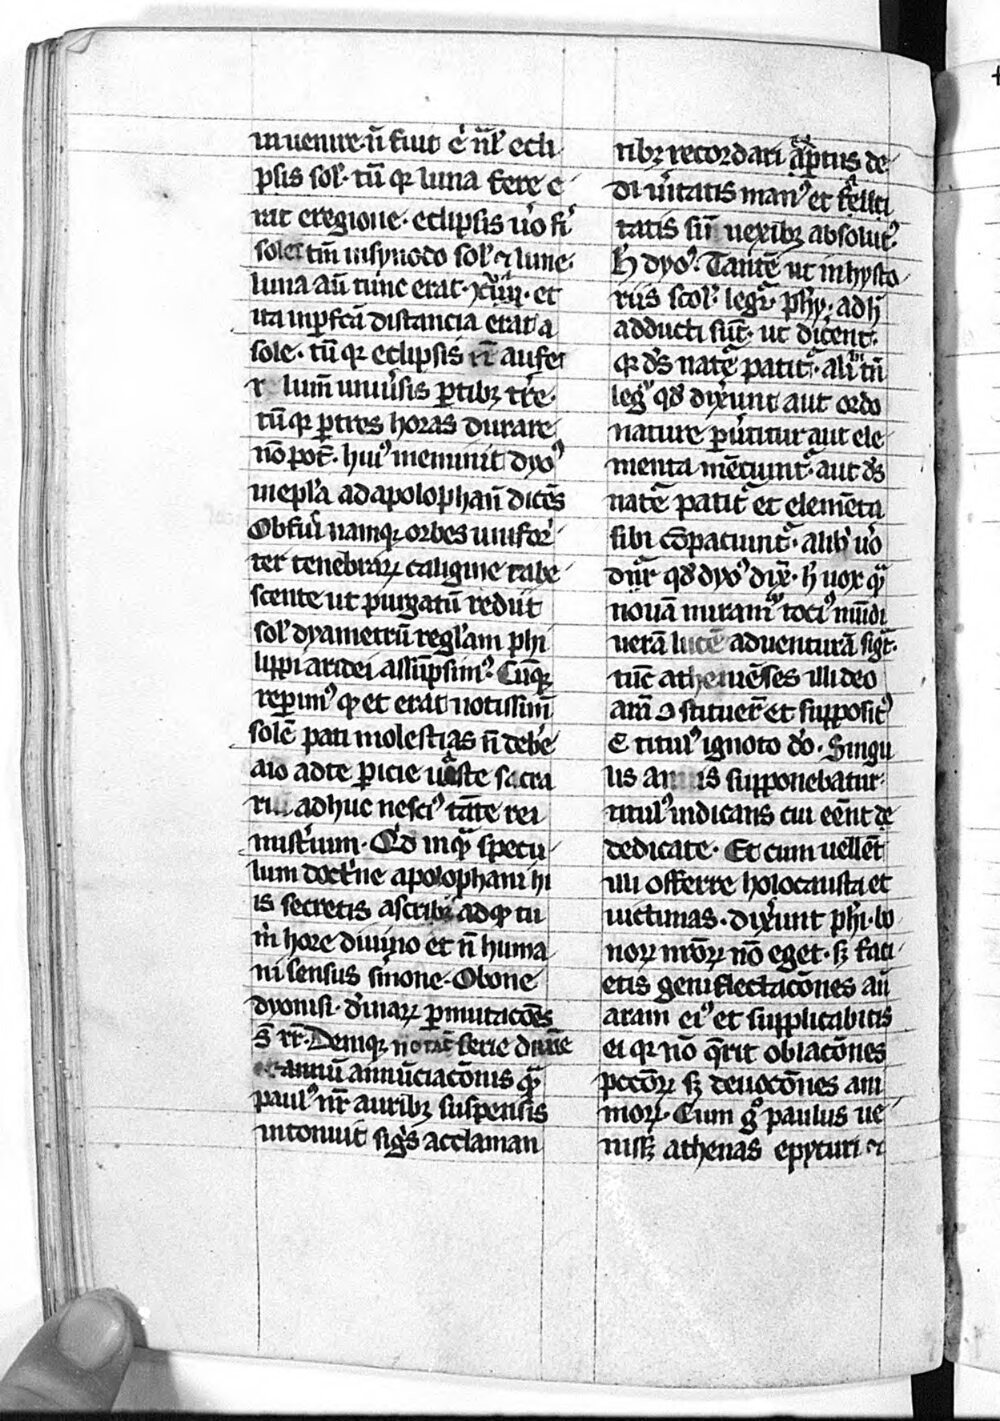 in uenire· ñ fuit .n. nãl ecli
psis sol· tũ qꝛ luna fere e
rat eregione· eclipsis ůo fi
solet tm̃ insynodo sol' ⁊ lune·
luna aũ tunc erat ·xiiii· et
ita inꝑfcã distancia erat a
sole· tũ qꝛ eclipsis ñ aufer
lumẽ uniůsis ꝑtibꝫ tr̃e·
tũ qꝛ ꝑ tres horas durare
nõ pot̃· hui' meminit dyo'
in epl'a ad apolophan̄ dicẽs
Obscůi namqꝫ orbes unifor'
ter tenebraꝝ caligine tabe
scente ut purgatũ rediit
sol' dyametrũ regl'am phi
lippi aridei assũpsim'· Cũqꝫ
repim' qꝫ et erat notissim̃
solẽ pati molestias ñ deb'e
aio adte ꝑicie uaste sacra
adhuc nesci' tãte rei
mist'ium· Qd inqã specu
lum doct'ne apolophani hi
is secretis ascribi adqꝫ tu
m̃ hore diuino et ñ huma
ni sensus ſmone· O bone
dyonisi· diuinaꝝ ꝑmutacões
s̃ rr̃· Deniqꝫ notat̃ serie diuine
annũ annũciacõnis qꝫ
paul' nr̃ auribꝫ suspensis
intonuit sig̾s acclaman
tibꝫ recordari aptus de
di ůitatis man' et fellici
tatis sum nexibꝫ absolut'·
h dyo'· Tantẽ ut in hysto
riis scol' legr̃ phỹ· ad h
adducti sũt· ut dicent·
qꝛ ds nat̃e patit̃· alibi tñ
leg' qd dixerunt aut ordo
nature ꝑůtitur aut ele
menta mẽtiunt̃· aut ds
nat̃e patit̃ et elemẽta
sibi cõpatiunt̃· alibi ůo
dr̃ qd dyo' dix̃· h nox qã
nouã miram' toci' mũdi
uerã lucẽ aduenturã sigt̃·
tũc atheniẽses illi deo
arã ꝯstituer̃t et suꝑposit'
ẽ titul' ignoto do· Singu
lis annis suꝑponebatur·
titul' indicans cui eẽnt de
dedicate· Et cum uellẽt
illi offerre holocausta et
uictimas· dixerunt phi· bo
noꝝ nr̃oꝝ nõ eget· sꝫ faci
etis geniflectacõnes añ
aram ei' et supplicabitis
ei qꝛ nõ qrit oblacõnes
pecoꝝ sꝫ deuocõnes ani
moꝝ· Cum g° paulus ue
nissꝫ athenas epycuri ⁊